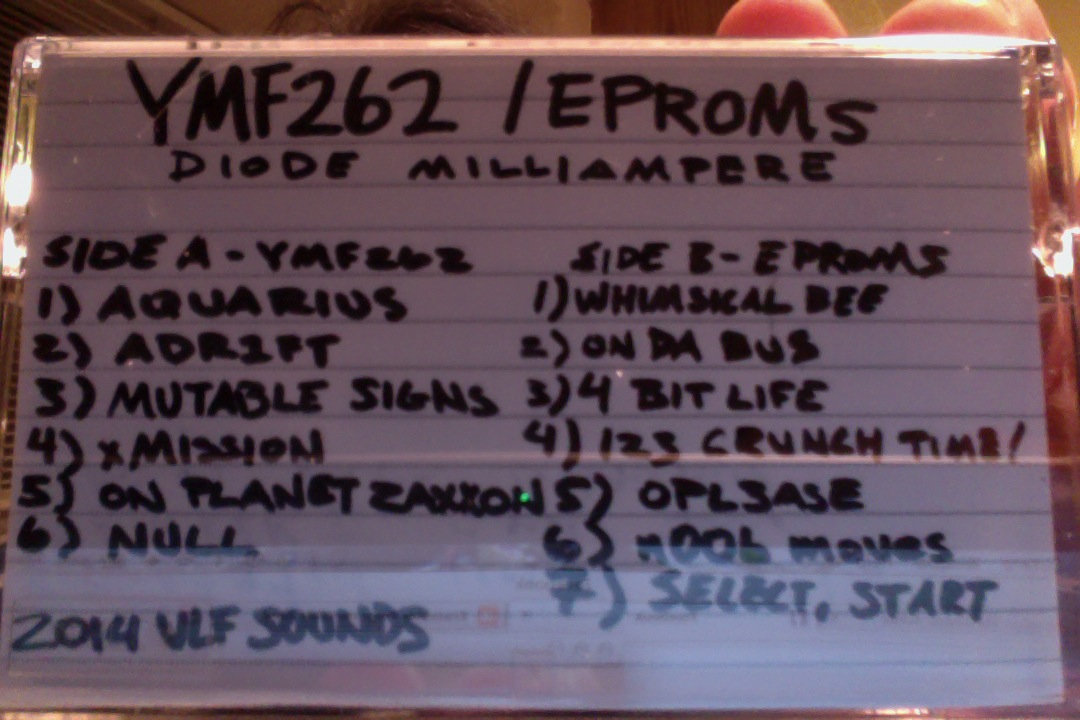 YMF262 / EPROMS
DIODE MILLIAMPERE
SIDE A - YMF262
1) AQUARIUS
2) ADRIFT
3) MUTABLE SIGNS
4) XMISSION
5) ON PLANET ZAXXON
6) NULL
2014 VLF SOUNDS
SIDE B - EPROMS
1) WHIMSICAL BEE
2) ON DA BUS
3) 4 BIT LIFE
4) 123 CRUNCH TIME!
5) OPL3ASE
6) MOVES
7) SELECT, START